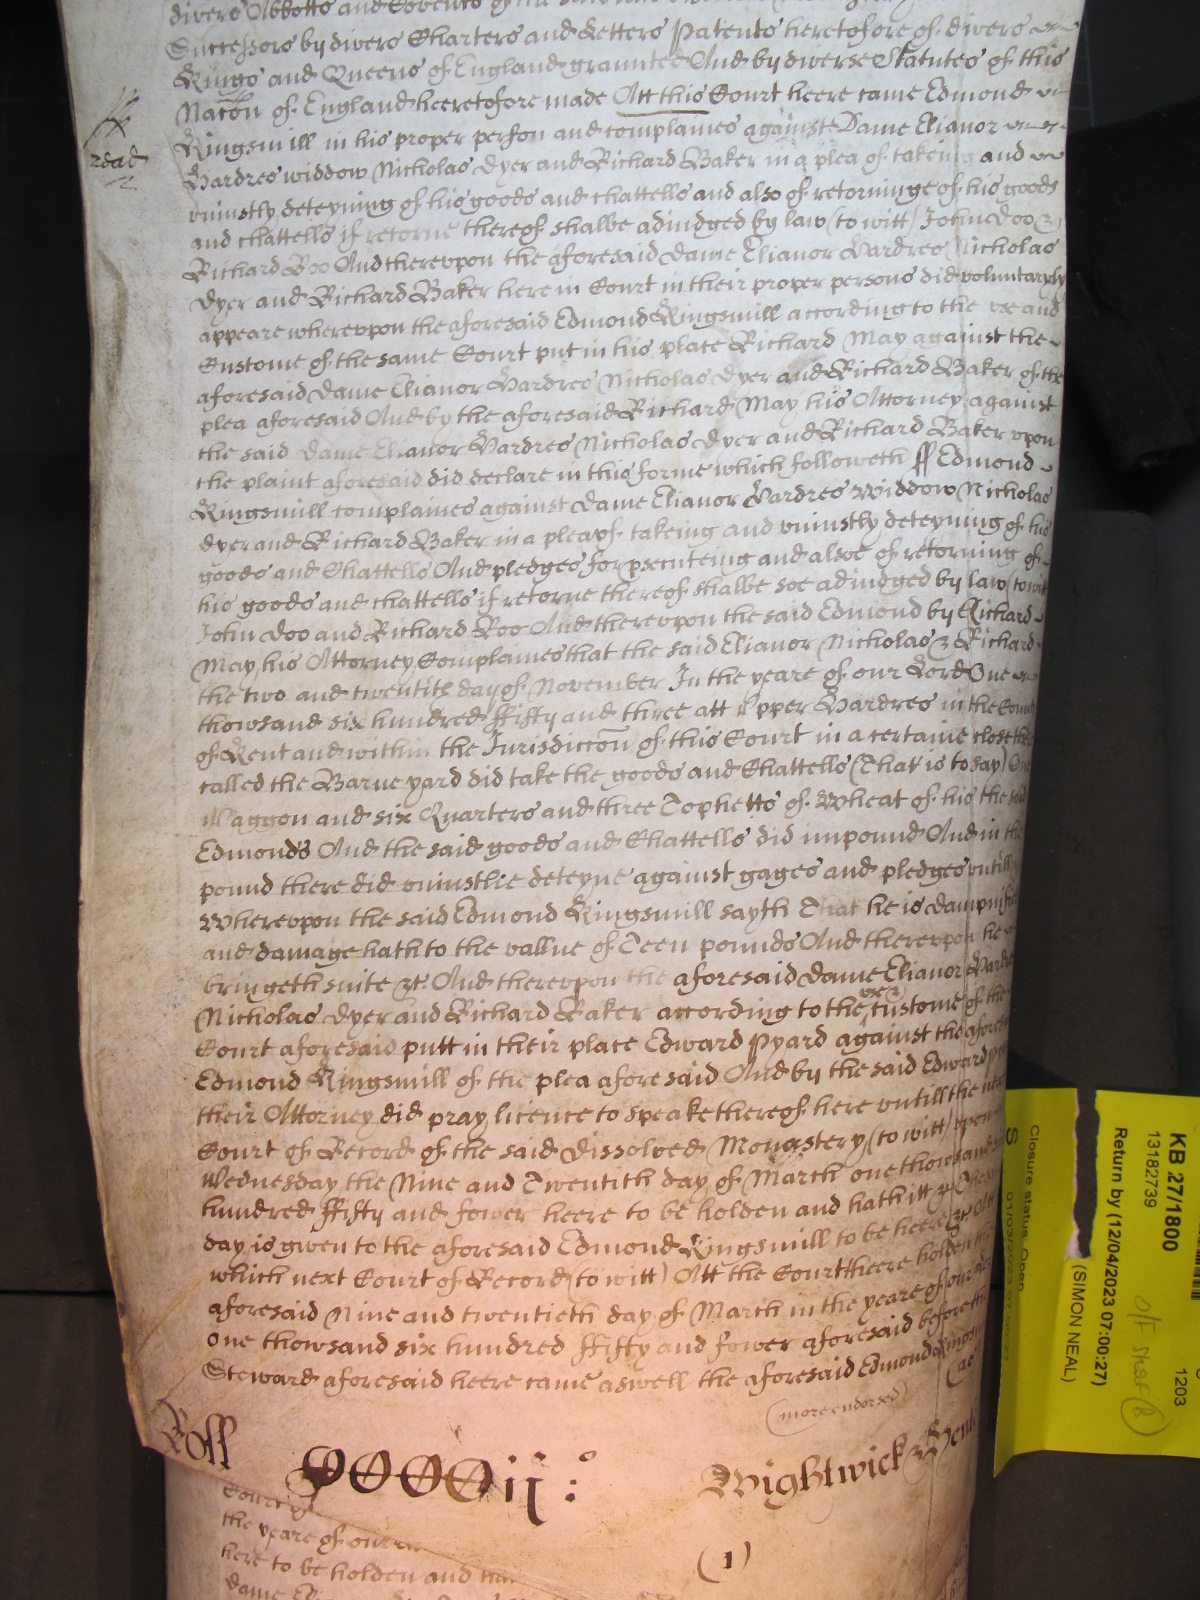 divers Abbotts and Covents of the said
Successors by divers Charters and Letters Patents heretofore of divers
Kings and Queens of England graunted And by diverse Statutes of this
Nacon of England heeretofore made Att this Court heere came Edmond
Kingsmill in his proper person and complaines against Dame Elianor
read
Hardres widdow Nicholas Dyer and Richard Baker in a plea of takeing and
uniustly deteyning of his goods and chattells and also of retorninge of his goods
and chattells if retorne thereof shalbe adiudged by law (to witt) John Doo &
Richard Roo And thereupon the aforesaid Dame Elianor Hardres Nicholas
Dyer and Richard Baker here in Court in their proper persons did voluntaryly
appeare whereupon the aforesaid Edmond Kingsmill according to the use and
Custome of the same Court put in his place Richard May against the
aforesaid Dame Elianor Hardres Nicholas Dyer and Richard Baker of the
plea aforesaid And by the aforesaid Richard May his Attorney against
the said Dame Elianor Hardres Nicholas Dyer and Richard Baker upon
the plaint aforesaid did declare in this forme which followeth ss Edmond
Kingsmill complaines against Dame Elianor Hardres Widdow Nicholas
Dyer and Richard Baker in a plea of takeing and uniustly deteyning of his
goods and Chattells And pledges for psecuteing and alsoe of retorning of
his goods and chattells if retorne thereof shalbe soe adiudged by law (to witt
John Doo and Richard Roo And thereupon the said Edmond by Richard
May his Attorney Complaines that the said Elianor Nicholas & Richard
the two and twentith day of November In the yeare of our Lord One
thowsand six hundred ffifty and three att Upper Hardres in the County
of Kent and within the Jurisdiccon of this Court in a certaine close there
called the Barne yard did take the goods and Chattells (That is to say) One
Waggon and six Quarters and three Tophetts of Wheat of his the said
Edmonds And the said goods and Chattells did impound And in the
pound there did uniustlie deteyne against gages and pledges untill
Whereupon the said Edmond Kingsmill sayth That he is dampnified
and damage hath to the vallue of Teen pounds And thereupon he
bringeth suite &c And thereupon the aforesaid Dame Elianor Hardres
Nicholas Dyer and Richard Baker according to the use & custome of the
Court aforesaid putt in their place Edward Pyard against the afore
Edmond Kingsmill of the plea aforesaid And by the said Edward
their Attorney did pray licence to speake thereof here untill the next
Court of Record of the said dissolved Monastery (to witt) upon
Wednesday the Nine and Twentith day of March one thowsand
hundred ffifty and fower heere to be holden and hath itt &c
day is given to the aforesaid Edmond Kingsmill to be heere &c Att
which next Court of Record (to witt) Att the Court heere holden the
aforesaid Nine and twentieth day of March in the yeare of our
one thowsand six hundred ffifty and fower aforesaid before the
Steward aforesaid heere came aswell the aforesaid Edmond Kingsm
(more endorsed) (as
Roll ij Wightwick
Court of
the yeare of our
here to be holden and
Dame
(1)
KB 27/1800
13182739
1203
Return by (12/04/2023 07:00:27)
(SIMON NEAL)
Closure status: Open
S